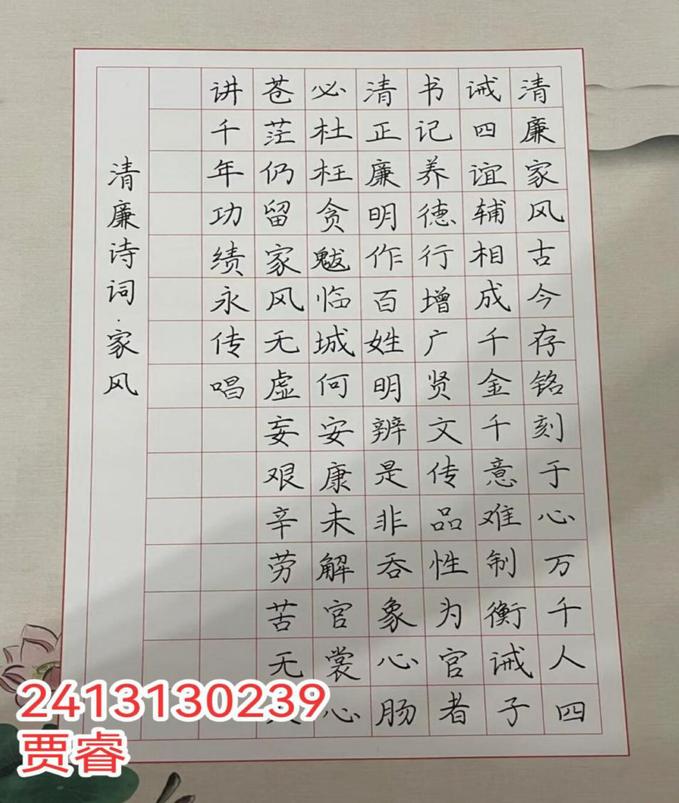 清廉家风古今存铭刻于心万千人四
诫四谊辅相成千金千意难制衡诫子
书记养德行增广贤文传品性为官者
清正廉明作百姓明辨是非吞象心肠
必杜枉贪魃临城何安康未解官裳心
苍茫仍留家风无虚妄艰辛劳苦无
讲千年功绩永传唱
清廉诗词·家风
2413130239
贾睿